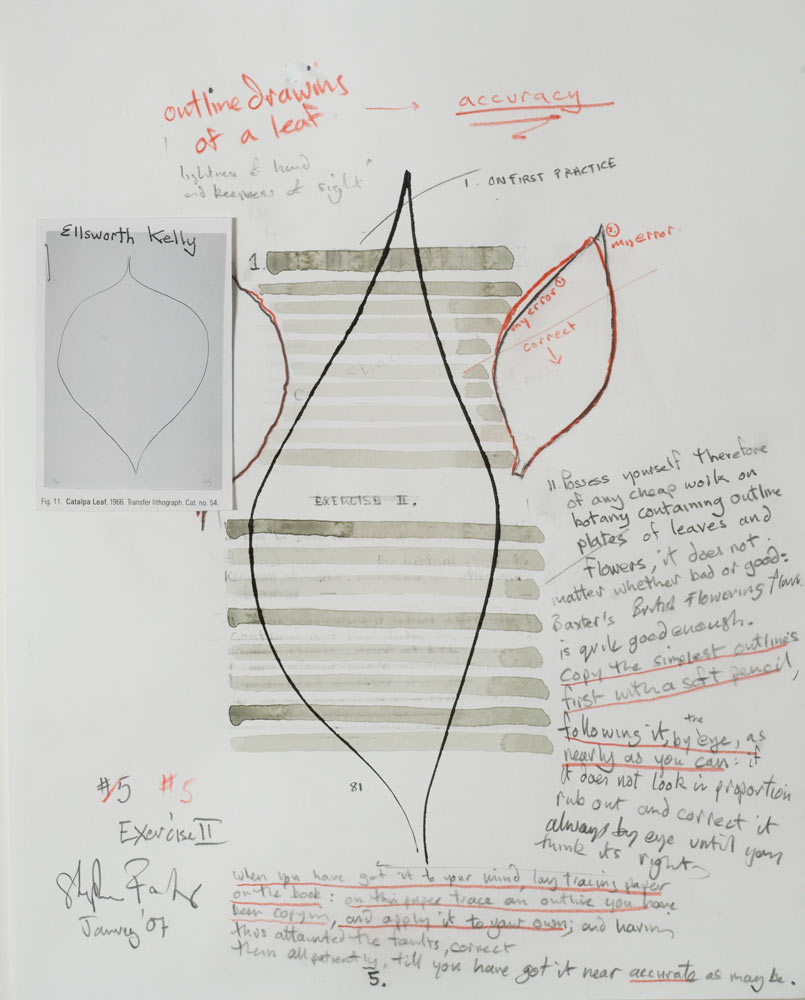 outline drawing
of a leaf
accuracy
lightness of hand
and keenness of sight
I. ON FIRST PRACTICE
Ellsworth Kelly
Fig. 11. Catalpa Leaf, 1966. Transfer lithograph. Cat. no. 54.
1.
② my error.
my error ①
correct
C
EXERCISE II.
II. Possess yourself therefore
of any cheap work on
botany containing outline
plates of leaves and
flowers, it does not
matter whether bad or good:
Baxter's British Flowering
is quite good enough.
copy the simplest outlines
first with a soft pencil,
following it, by the eye, as
nearly as you can: if
it does not look in proportion
rub out and correct it
always by eye until you
think its right
81
#5 #5
Exercise II
January '07
when you have got it to your mind, lay tracing paper
on the book: on this paper trace an outline you have
been copying, and apply it to your own; and having
thus the faults, correct
them all patiently, till you have got it near accurate as may be.
5.